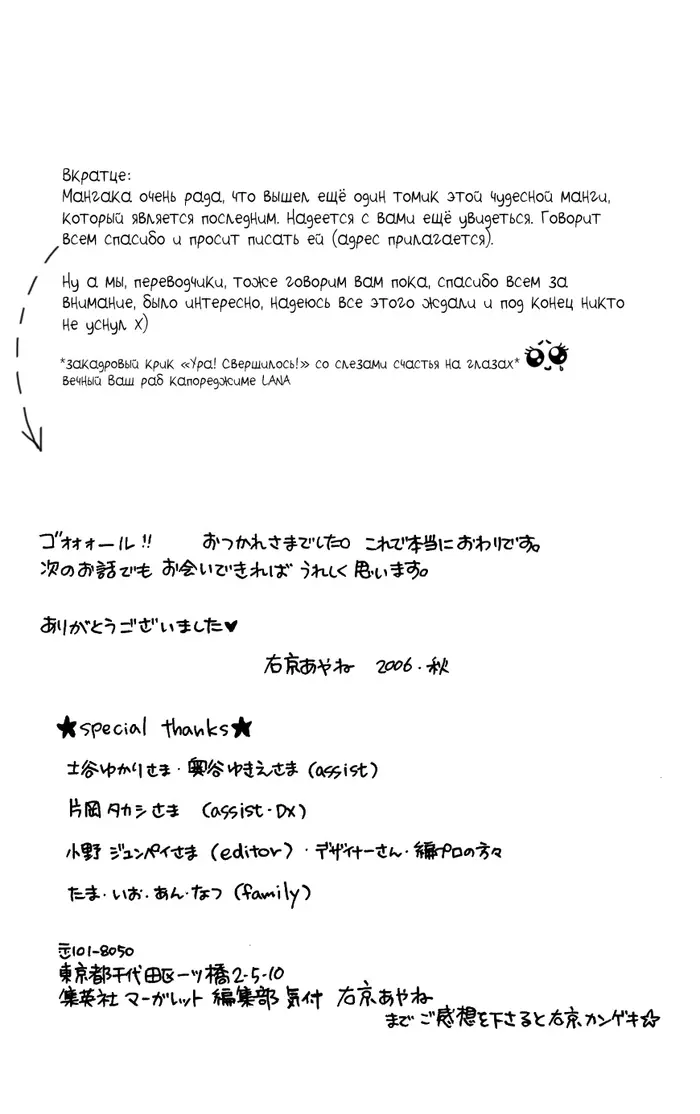 Вкратце:
Мангака очень рада, что вышел ещё один томик этой чудесной манги,
который является последним. Надеется с вами ещё увидеться. Говорит
всем спасибо и просит писать ей (адрес прилагается).
Ну а мы, переводчики, тоже говорим вам пока, спасибо всем за
внимание, было интересно, надеюсь все этого ждали и под конец никто
не уснул x)
*закадровый крик «Ура! Свершилось!» со слезами счастья на глазах*
вечный ваш раб капореджиме LANA
ゴォォォール!! おつかれさまでした。これで本当におわりです。
次のお話でも お会いできれば うれしく思います。
ありがとうございました♥
右京あやね 2006.秋
★special thanks★
土谷ゆかりさま・奥谷ゆきえさま (assist)
片岡タカシさま (assist・Dx)
小野ジュンパイさま (editor)・デザイナーさん・編プロの方々
たま・いお・あん・なつ (family)
〒101-8050
東京都千代田区一ツ橋2-5-10
集英社 マーガレット 編集部 気付 右京あやね
まで ご感想を下さると右京カンゲキ☆